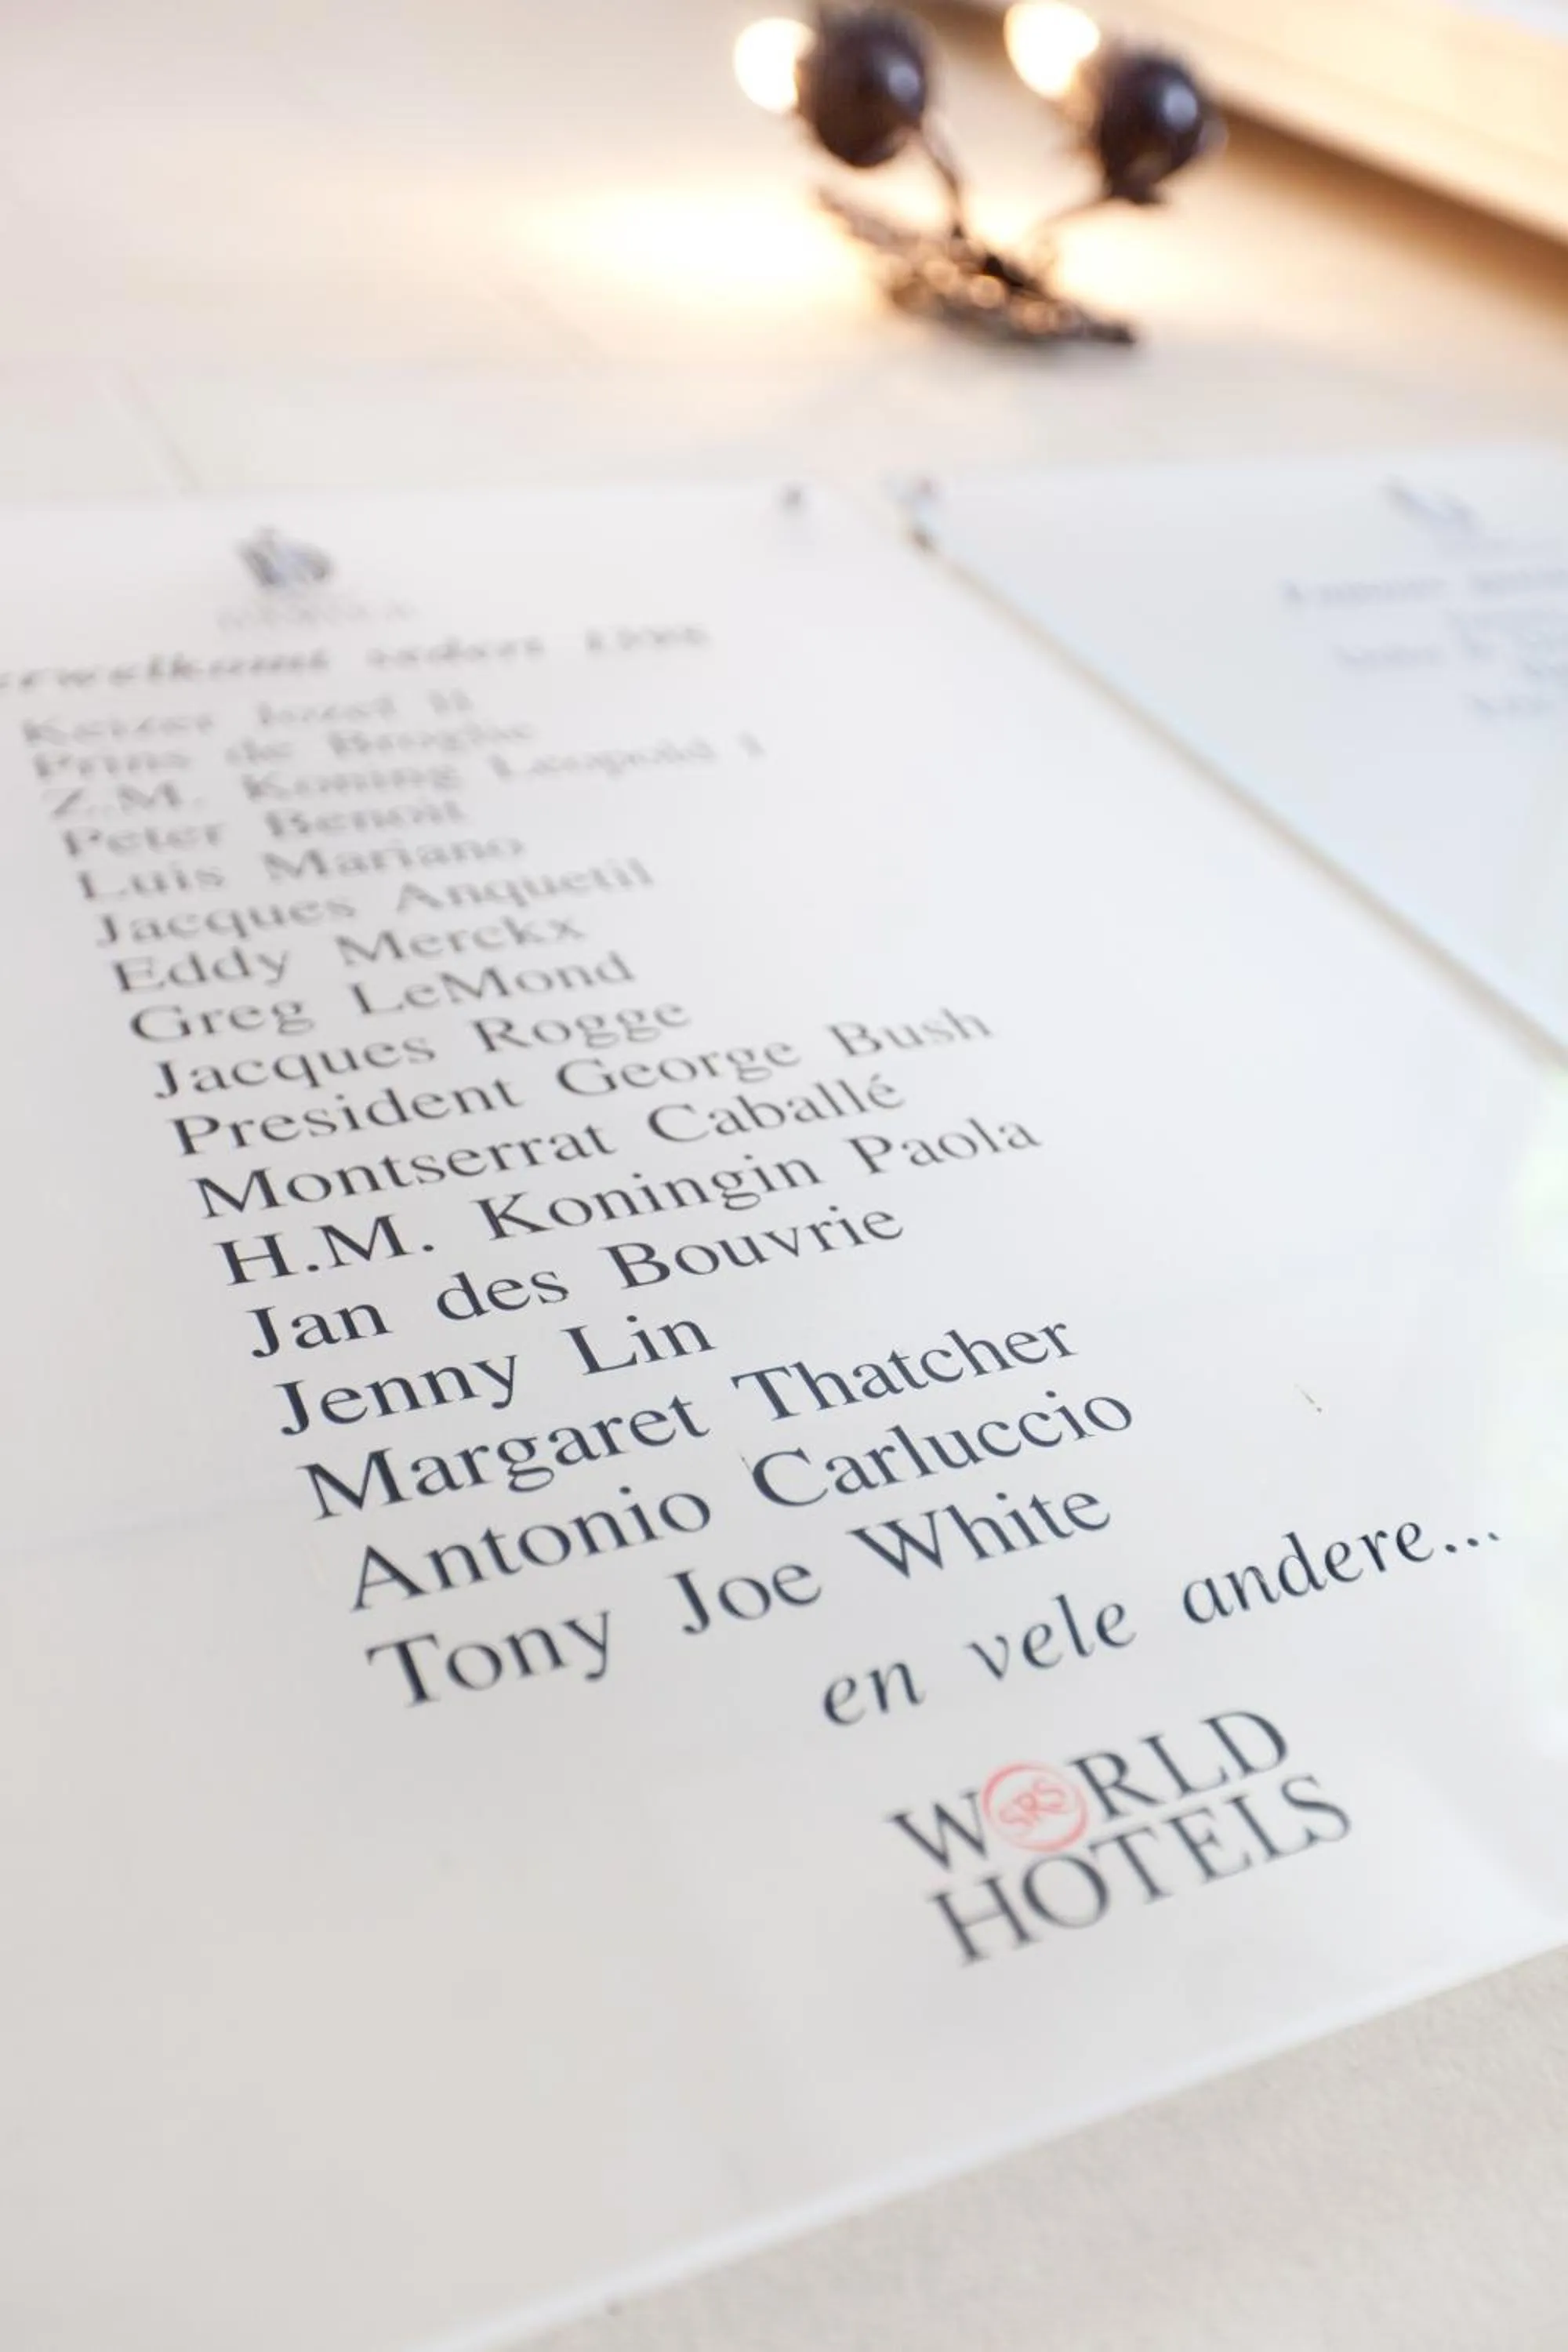 Keizer Jozef II
Prins de Broglie
Z.M. Koning Leopold I
Peter Benoit
Luis Mariano
Jacques Anquetil
Eddy Merckx
Greg LeMond
Jacques Rogge
President George Bush
Montserrat Caballé
H.M. Koningin Paola
Jan des Bouvrie
Jenny Lin
Margaret Thatcher
Antonio Carluccio
Tony Joe White
en vele andere...
WORLD
SRS
HOTELS